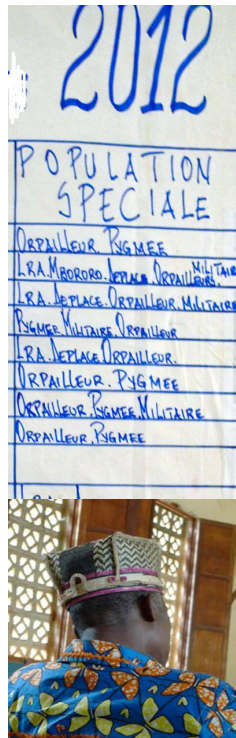 2012
POPULATION
SPECIALE
ORPAILLEUR PYGMEE
LRA. MBORORO. DEPLACE. ORPAILLEURS. MILITAIRE
LRA. DEPLACE. ORPAILLEUR. MILITAIRE
PYGMEE. MILITAIRE. ORPAILLEUR
LRA. DEPLACE. ORPAILLEUR.
ORPAILLEUR. PYGMEE
ORPAILLEUR. PYGMEE. MILITAIRE
ORPAILLEUR. PYGMEE